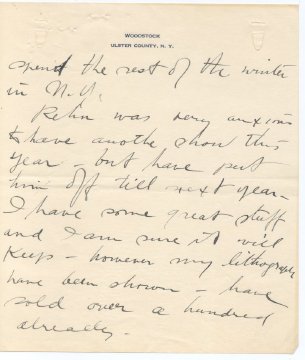 WOODSTOCK
ULSTER COUNTY, N. Y.
spend the rest of the winter
in N.Y.
Rehn was very anxious
to have anothe show this
year - but have put
him off till next year -
I have some great stuff
and I am sure it will
keep - however my lithographs
have been shown - have
sold over a hundred
already.